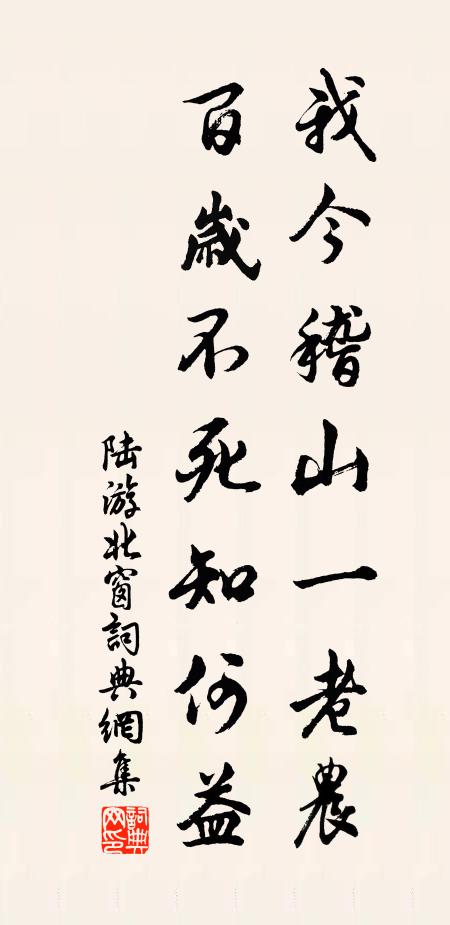 我今稽山一老農
百歲不死知何益
陸游北窗詞典網集
詞典网印